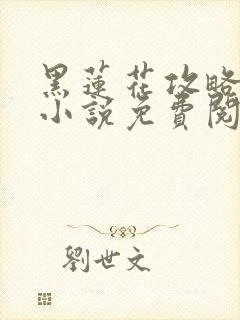 黑蓮花攻略
小說免費閱
劉世文